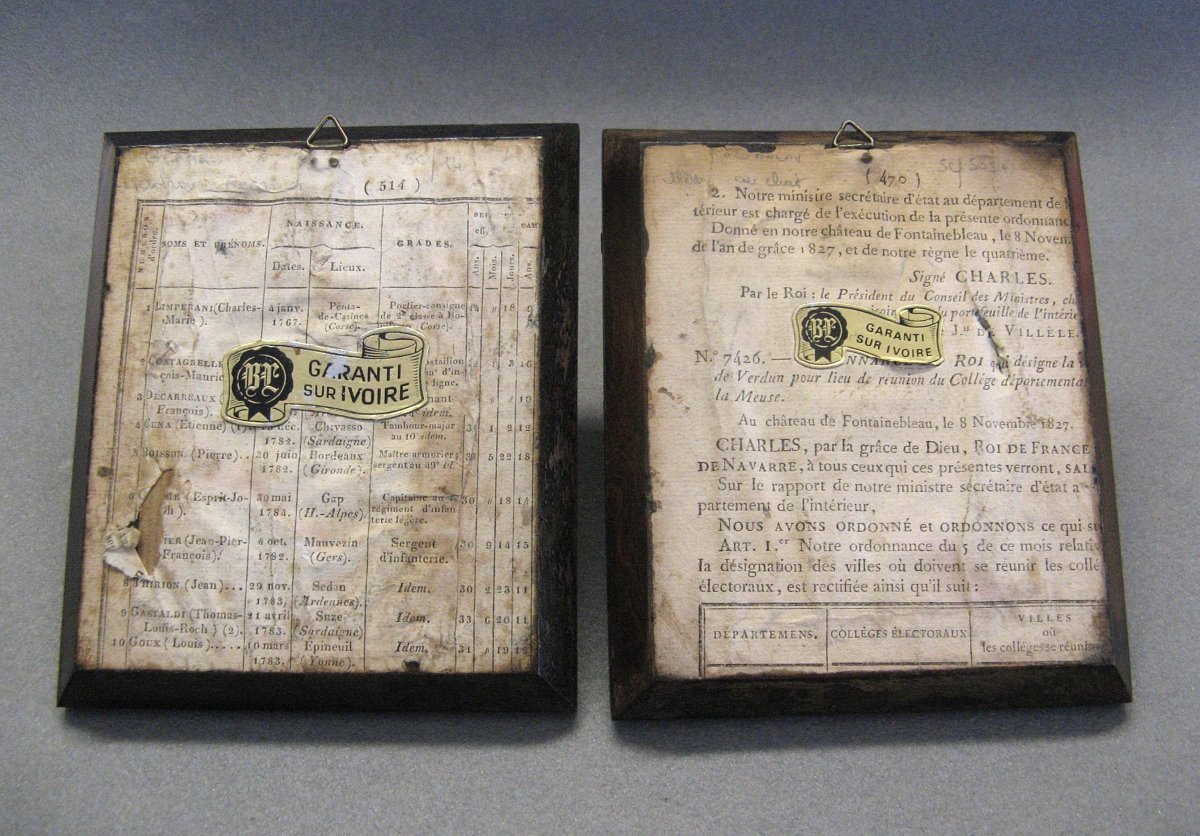 ( 514 )
NAISSANCE.
SOMS ET PRÉNOMS.
GRADES.
Dates.
Lieux.
Ans.
Mois.
Jours.
Ans.
1 LIMPERANI (Charles- 4 janv. Penta- Portier-consigne 14 18 9
Marie). 1767. de-Casinca de 2e classe à
(Corse). (Corse).
2 COSTAGRELLE
çois-Mauric
GARANTI
SUR IVOIRE
3 DECARREAUX
François). idem.
4 CENA (Etienne) (1) Chivasso Tambour-major 2 12
1782. (Sardaigne) au 10e idem.
5 BOISSON (Pierre).. 30 juin Bordeaux Maître armurier; 5 22 18
1782. (Gironde). sergent au 49e id.
(Esprit-Jo- 30 mai Gap Capitaine au 30 18 14
1784. (H.-Alpes). régiment d'infan
terie légère.
(Jean-Pier- 4 oct. Mauvezin Sergent 30 9 14 15
François). 1782. (Gers). d'infanterie.
8 THIRION (Jean)... 29 nov. Sedan Idem. 30 2 23 11
1783. (Ardennes).
9 GASTALDI (Thomas- 21 avril Suze Idem. 33 6 20 11
Louis-Roch) (2). 1783. (Sardaigne)
10 GOUX (Louis)..... 10 mars Epineuil Idem. 31 19 12
1783. (Yonne).
( 470 )
2. Notre ministre secrétaire d'état au département de l
térieur est chargé de l'exécution de la présente ordonnanc
Donné en notre château de Fontainebleau, le 8 Novem
de l'an de grâce 1827, et de notre règne le quatrième.
Signé CHARLES.
Par le Roi : le Président du Conseil des Ministres, ch
du portefeuille de l'intérie
DE VILLÈLE.
GARANTI
SUR IVOIRE
N.° 7426. — ROI qui désigne la
de Verdun pour lieu de réunion du Collége départementa
la Meuse.
Au château de Fontainebleau, le 8 Novembre 1827.
CHARLES, par la grâce de Dieu, ROI DE FRANCE
DE NAVARRE, à tous ceux qui ces présentes verront, SAL
Sur le rapport de notre ministre secrétaire d'état a
partement de l'intérieur,
NOUS AVONS ORDONNÉ et ORDONNONS ce qui s
ART. 1.er Notre ordonnance du 5 de ce mois relati
la désignation des villes où doivent se réunir les collé
électoraux, est rectifiée ainsi qu'il suit :
DÉPARTEMENS.
COLLÉGES ÉLECTORAUX
VILLES
où
les colléges se réuniss